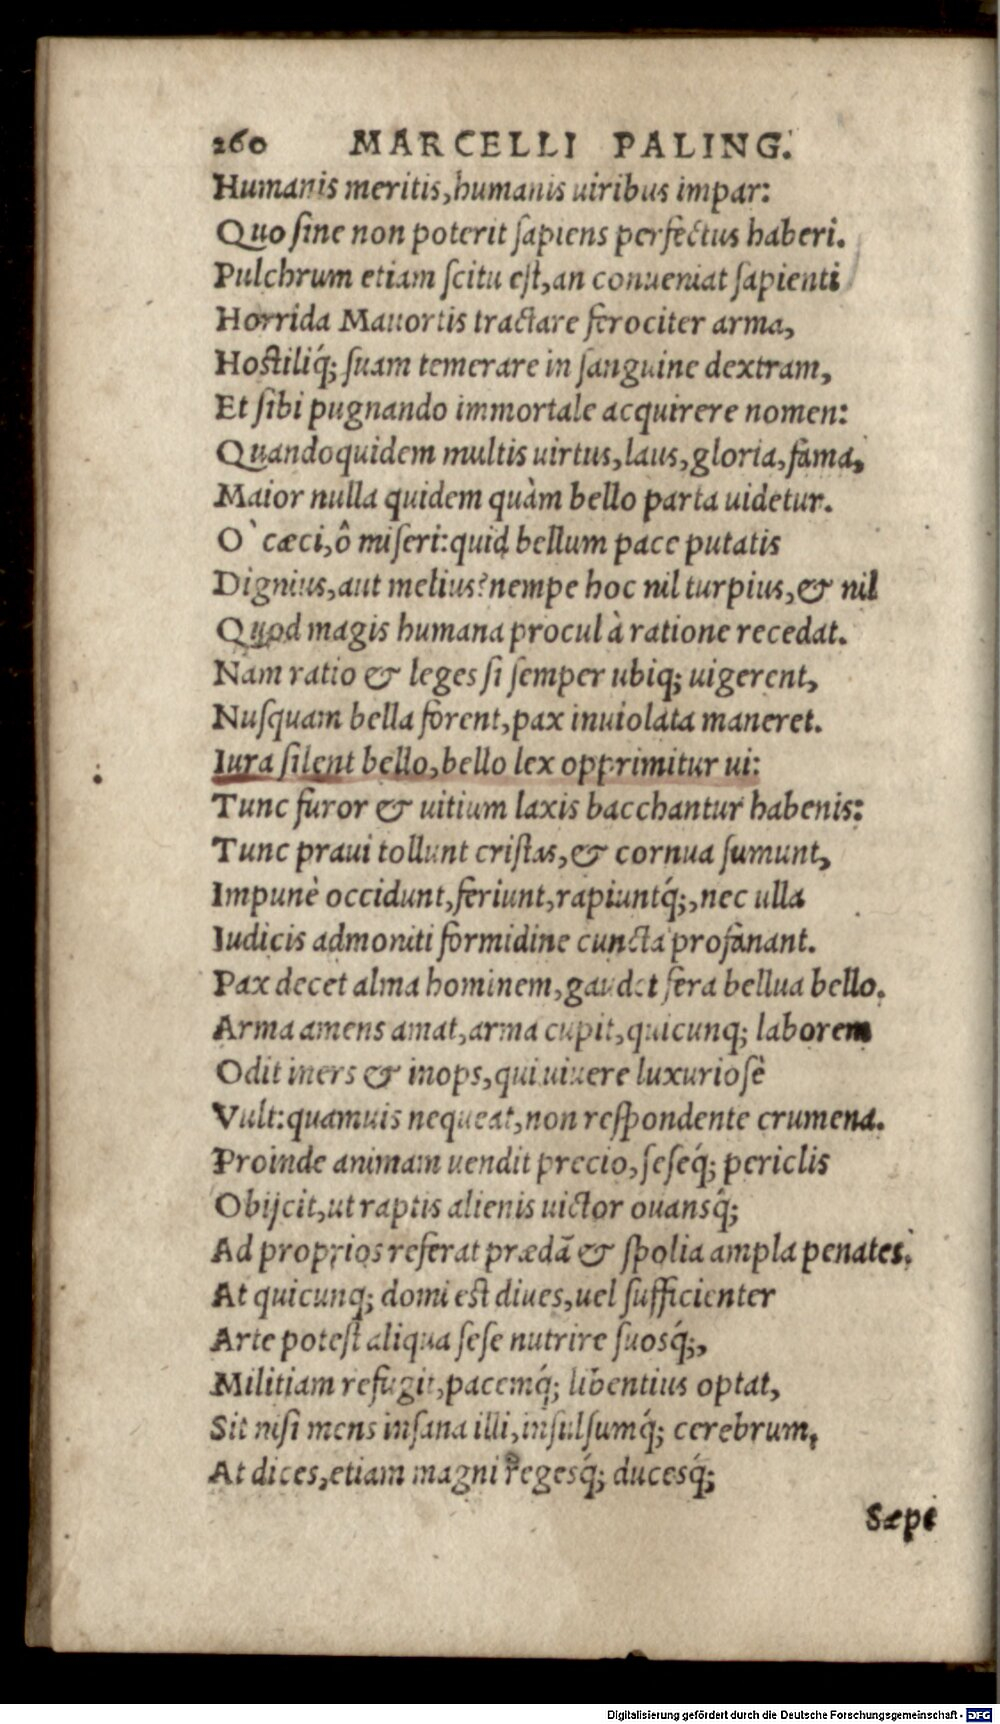 260 MARCELLI PALING.
Humanis meritis, humanis uiribus impar:
Quo ſine non poterit ſapiens perfectus haberi.
Pulchrum etiam ſcitu eſt, an conueniat ſapienti
Horrida Mauortis tractare ferociter arma,
Hoſtiliq́; ſuam temerare in ſanguine dextram,
Et ſibi pugnando immortale acquirere nomen:
Quandoquidem multis uirtus, laus, gloria, fama,
Maior nulla quidem quàm bello parta uidetur.
O` cæci, ô miſeri: quid bellum pace putatis
Dignius, aut melius? nempe hoc nil turpius, & nil
Quod magis humana procul à ratione recedat.
Nam ratio & leges ſi ſemper ubiq; uigerent,
Nuſquam bella forent, pax inuiolata maneret.
Iura ſilent bello, bello lex opprimitur ui:
Tunc furor & uitium laxis bacchantur habenis:
Tunc praui tollunt criſtas, & cornua ſumunt,
Impunè occidunt, feriunt, rapiuntq́;, nec ulla
Iudicis admoniti formidine cuncta profanant.
Pax decet alma hominem, gaudet fera bellua bello.
Arma amens amat, arma cupit, quicunq; laborem
Odit iners & inops, qui uiuere luxurioſè
Vult: quamuis nequeat, non reſpondente crumena.
Proinde animam uendit precio, ſeſeq́; periclis
Obijcit, ut raptis alienis uictor ouansq́;
Ad proprios referat prædã & ſpolia ampla penates.
At quicunq; domi eſt diues, uel ſufficienter
Arte poteſt aliqua ſeſe nutrire ſuosq́;,
Militiam refugit, pacemq́; libentius optat,
Sit niſi mens inſana illi, inſulſumq́; cerebrum,
At dices, etiam magni regesq́; ducesq́;
Sæpe
Digitalisierung gefördert durch die Deutsche Forschungsgemeinschaft - DFG